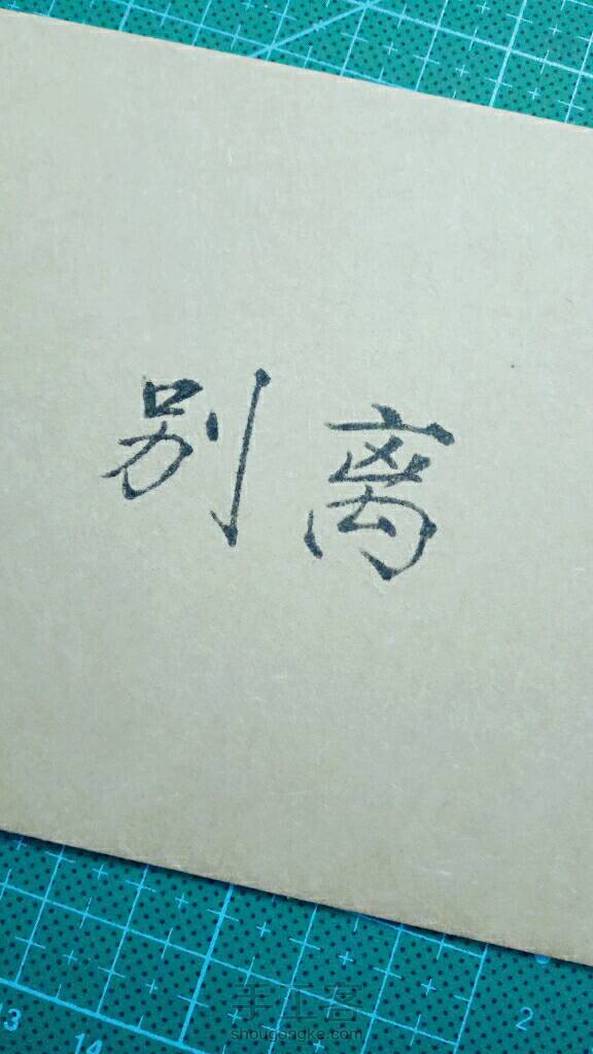 别离
手工客
shougongke.com
13
14
2